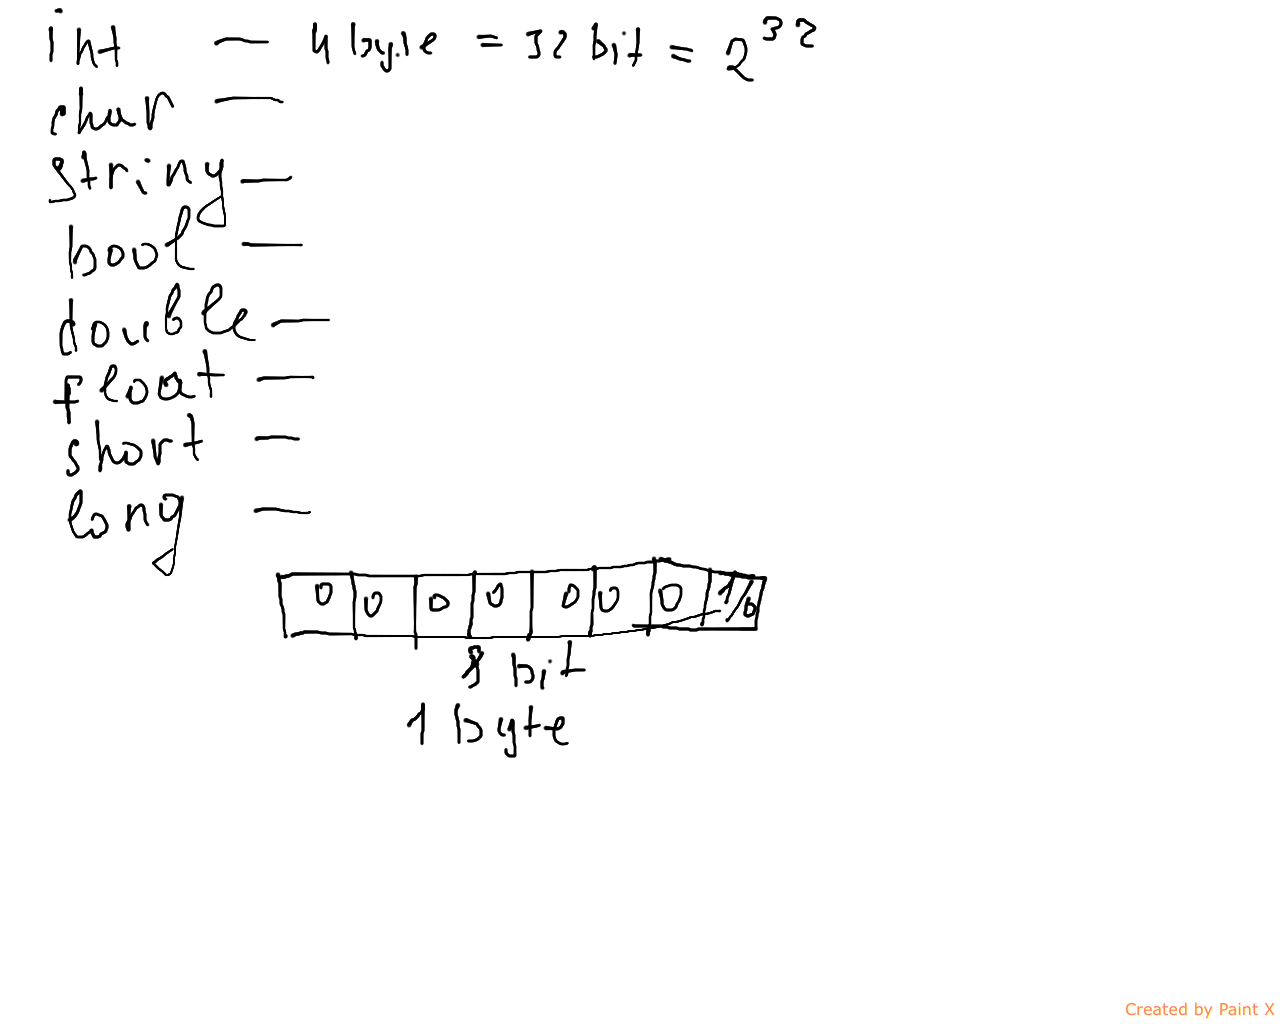 int — 4 byte = 32 bit = 2^32
char —
string —
bool —
double —
float —
short —
long —
0 0 0 0 0 0 0 1/0
8 bit
1 byte
Created by Paint X